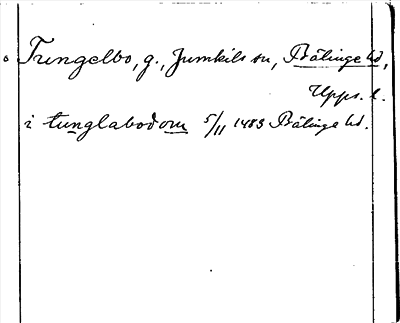 Tungelbo, g., Jumkils sn, Bälinge hd,
Upps. l.
i tunglabodom 5/11 1483 Bälinge hd.